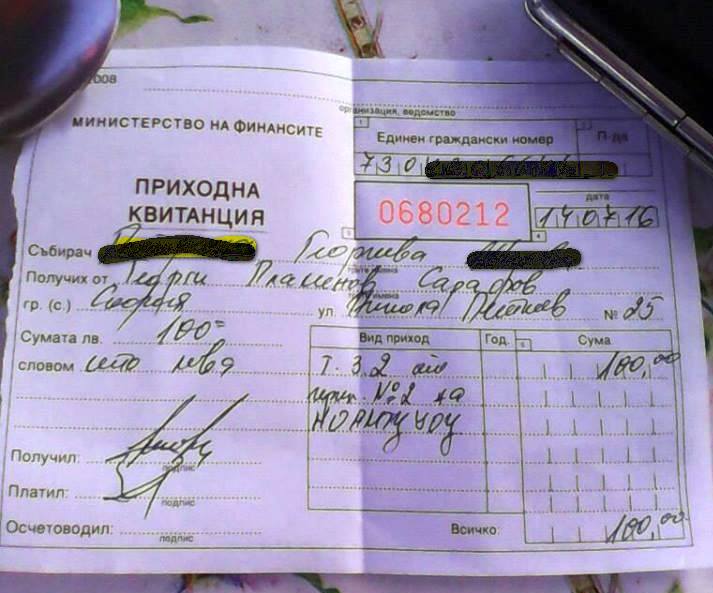 2008
организация, ведомство
МИНИСТЕРСТВО НА ФИНАНСИТЕ
Единен граждански номер
П-да
730
ПРИХОДНА
КВИТАНЦИЯ
0680212
дата
140716
Събирач Георгиева
Получих от Георги Пламенов Сарафов
гр. (с.) София ул. Никола Петков № 25
Сумата лв. 100=
словом сто лева
Вид приход Год. Сума
Т. 3.2 от 100,00
прил. № 2 на
НОАМТЦУОУ
Получил:
подпис
Платил:
подпис
Осчетоводил:
подпис
Всичко: 100,00